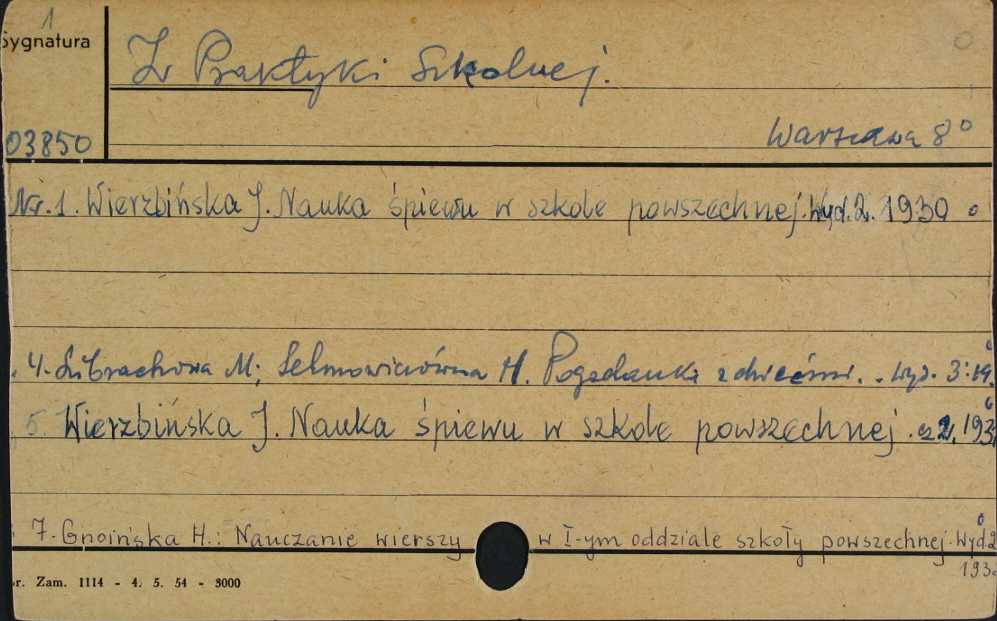 1
Sygnatura
Z Praktyki Szkolnej.
Warszawa 8°
03850
Nr. 1. Wierzbińska J. Nauka śpiewu w szkole powszechnej. Wyd. 2. 1930
4. Librachowa M; Selmowiczówna H. Pogadanki z dziećmi. Wyd. 3: 19
5. Wierzbińska J. Nauka śpiewu w szkole powszechnej. cz 2, 193
7. Gnoińska H.: Nauczanie wierszy w I-ym oddziale szkoły powszechnej. Wyd 2
193
r. Zam. 1114 - 4. 5. 54 - 3000